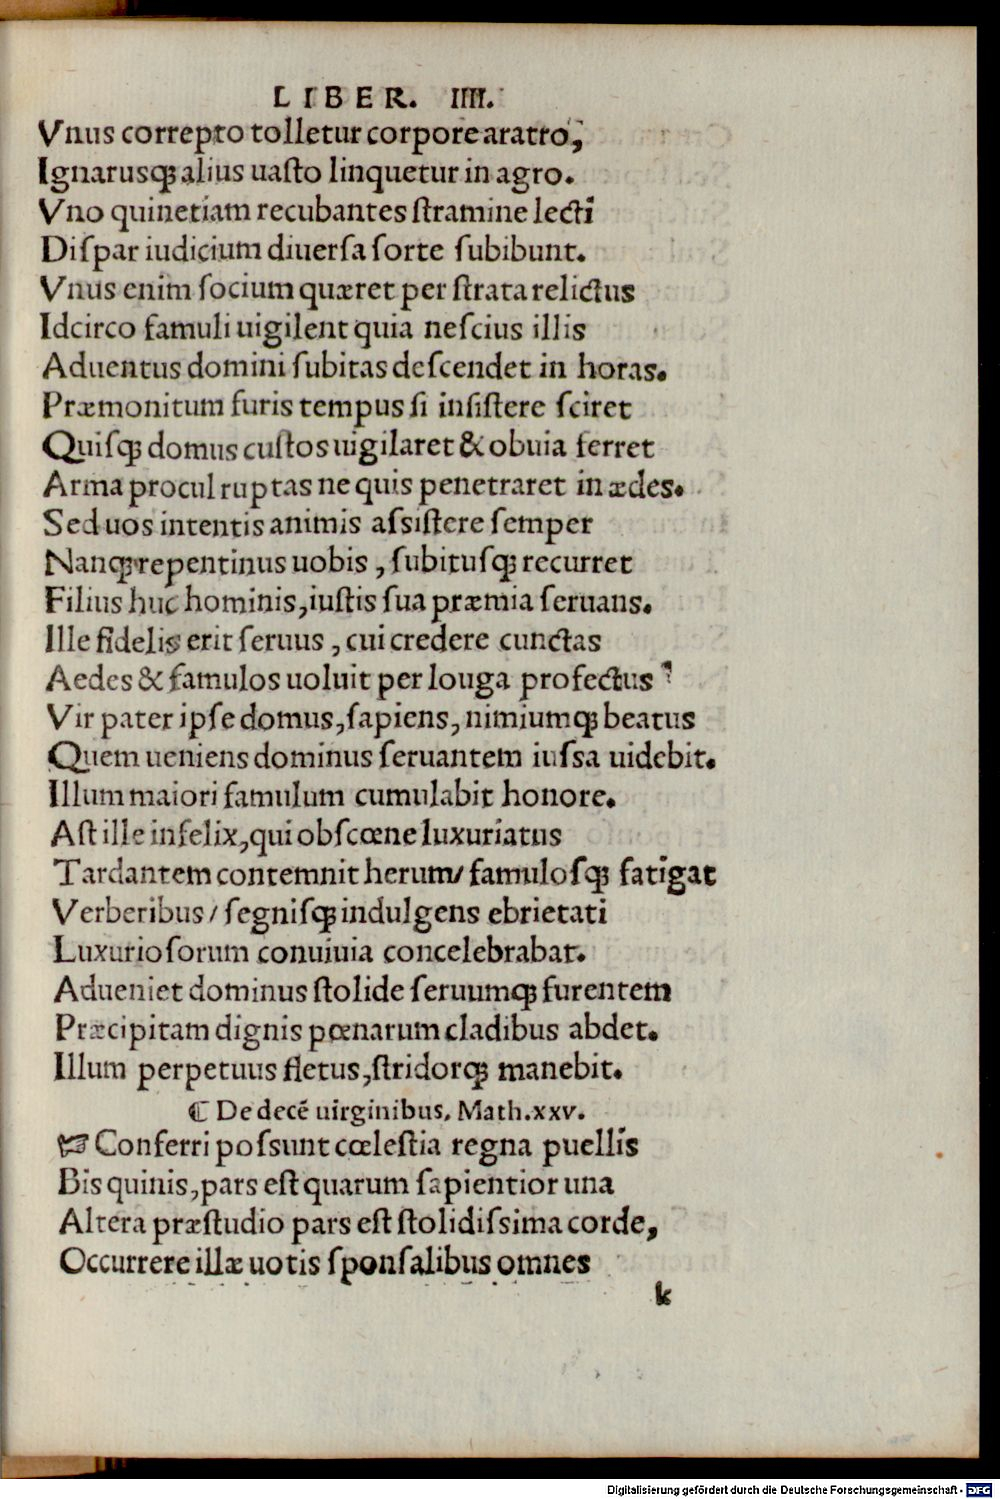 LIBER. IIII.
Vnus correpto tolletur corpore aratro,
Ignarusqꝫ alius uaſto linquetur in agro.
Vno quinetiam recubantes ſtramine lecti
Diſpar iudicium diuerſa ſorte ſubibunt.
Vnus enim ſocium quæret per ſtrata relictus
Idcirco famuli uigilent quia neſcius illis
Aduentus domini ſubitas deſcendet in horas.
Præmonitum furis tempus ſi inſiſtere ſciret
Quiſqꝫ domus cuſtos uigilaret & obuia ferret
Arma procul ruptas ne quis penetraret in ædes.
Sed uos intentis animis aſsiſtere ſemper
Nanqꝫ repentinus uobis, ſubituſqꝫ recurret
Filius huc hominis, iuſtis ſua præmia ſeruans.
Ille fidelis erit ſeruus, cui credere cunctas
Aedes & famulos uoluit per louga profectus?
Vir pater ipſe domus, ſapiens, nimiumqꝫ beatus
Quem ueniens dominus ſeruantem iuſsa uidebit.
Illum maiori famulum cumulabit honore.
Aſt ille infelix, qui obſcœne luxuriatus
Tardantem contemnit herum/ famuloſqꝫ fatigat
Verberibus/ ſegniſqꝫ indulgens ebrietati
Luxurioſorum conuiuia concelebrabat.
Adueniet dominus ſtolide ſeruumqꝫ furentem
Præcipitam dignis pœnarum cladibus abdet.
Illum perpetuus fletus, ſtridorqꝫ manebit.
⁋ De decē uirginibus. Math. xxv.
☞ Conferri poſsunt cœleſtia regna puellis
Bis quinis, pars eſt quarum ſapientior una
Altera præſtudio pars eſt ſtolidiſsima corde,
Occurrere illæ uotis ſponſalibus omnes
k
Digitalisierung gefördert durch die Deutsche Forschungsgemeinschaft - DFG